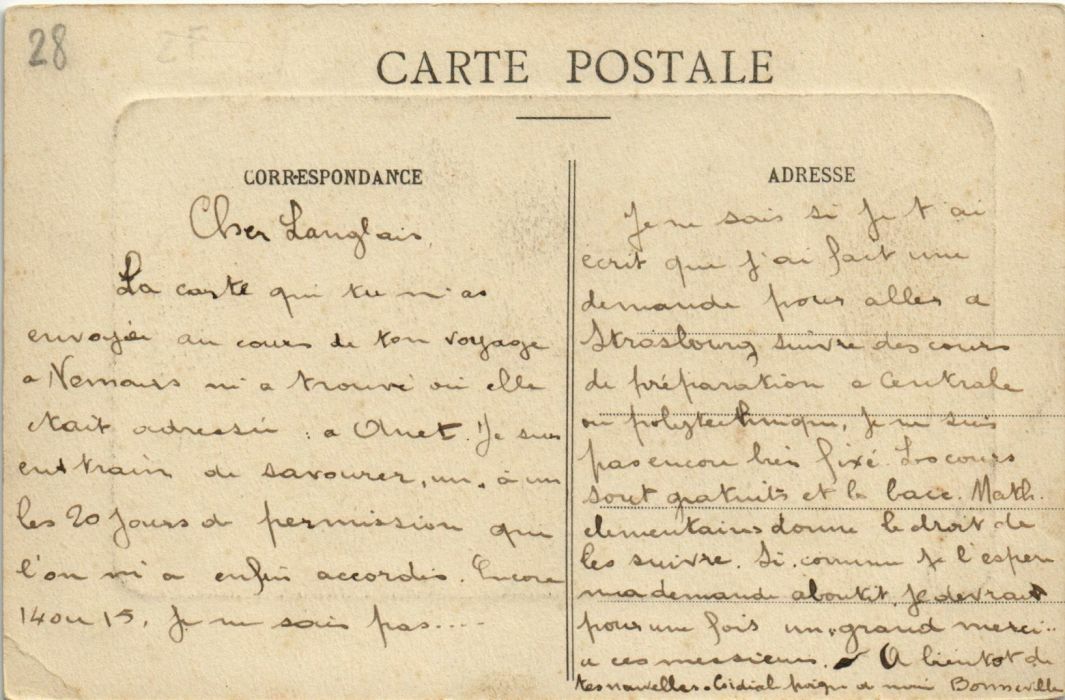 28
CARTE POSTALE
CORRESPONDANCE
Cher Langlais,
La carte qui tu m'as
envoyée au cours de ton voyage
a Nemours m'a trouvé où elle
etait adressée : a Anet. Je suis
en train de savourer, un, à un
les 20 jours de permission que
l'on m'a enfin accordés. Encore
14 ou 15, je ne sais pas....
ADRESSE
Je ne sais si je t'ai
ecrit que j'ai fait une
demande pour aller a
Strasbourg suivre des cours
de préparation a Centrale
ou polytechnique, je ne suis
pas encore bien fixé. Les cours
sont gratuits et le bacc. Math.
elementaires donne le droit de
les suivre. Si, comme je l'espere
ma demande aboutit, je devrai
pour une fois un grand merci..
a ces messieurs. A bientot de
tes nouvelles. Cordial poigne de main Bonneville